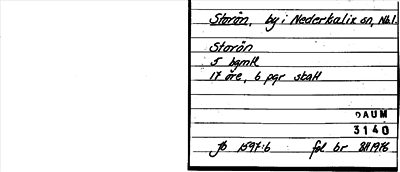 Storön, by i Nederkalix sn, Nbl.
Storön
5 bgmtl
17 öre, 6 pgr skatt
DAUM
3140
Jb 1597:6 fol br BH1976